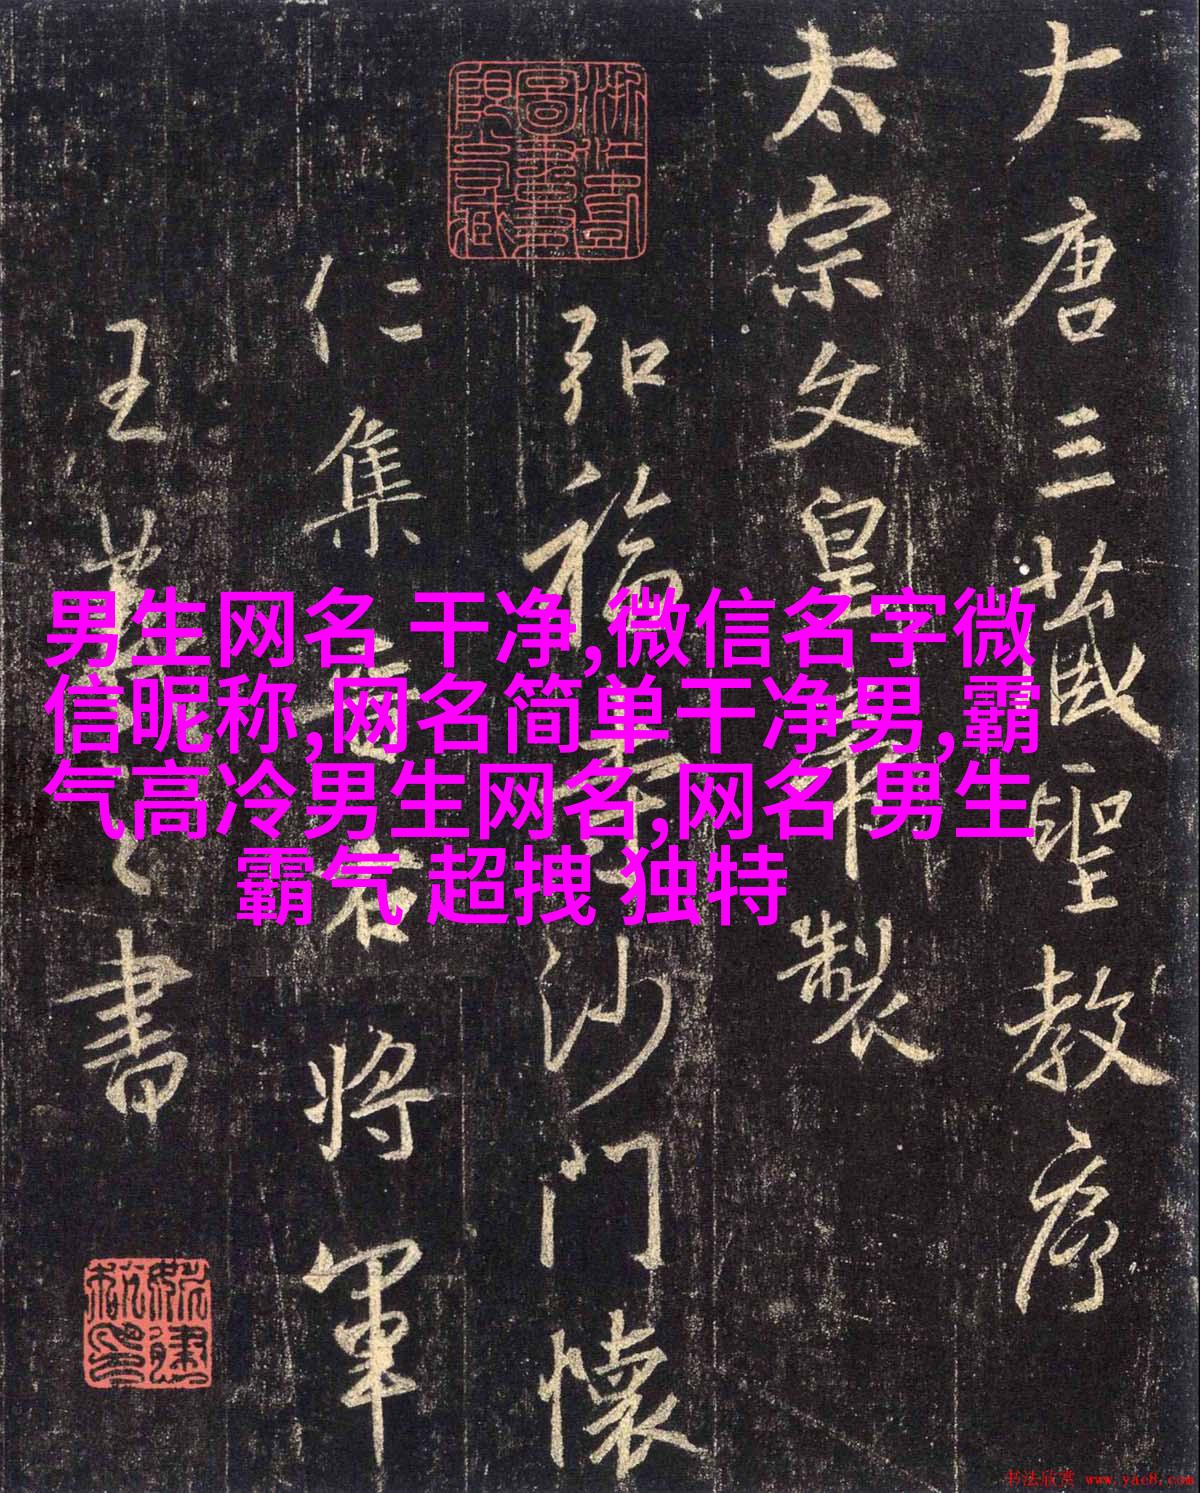 大唐三藏聖教序
太宗文皇帝製
弘福寺沙門懷
仁集晉右將軍
王羲之書
男生网名 干净,微信名字微
信昵称,网名简单干净男,霸
气高冷男生网名,网名 男生
霸气 超拽 独特
书法欣赏 www.yac8.com